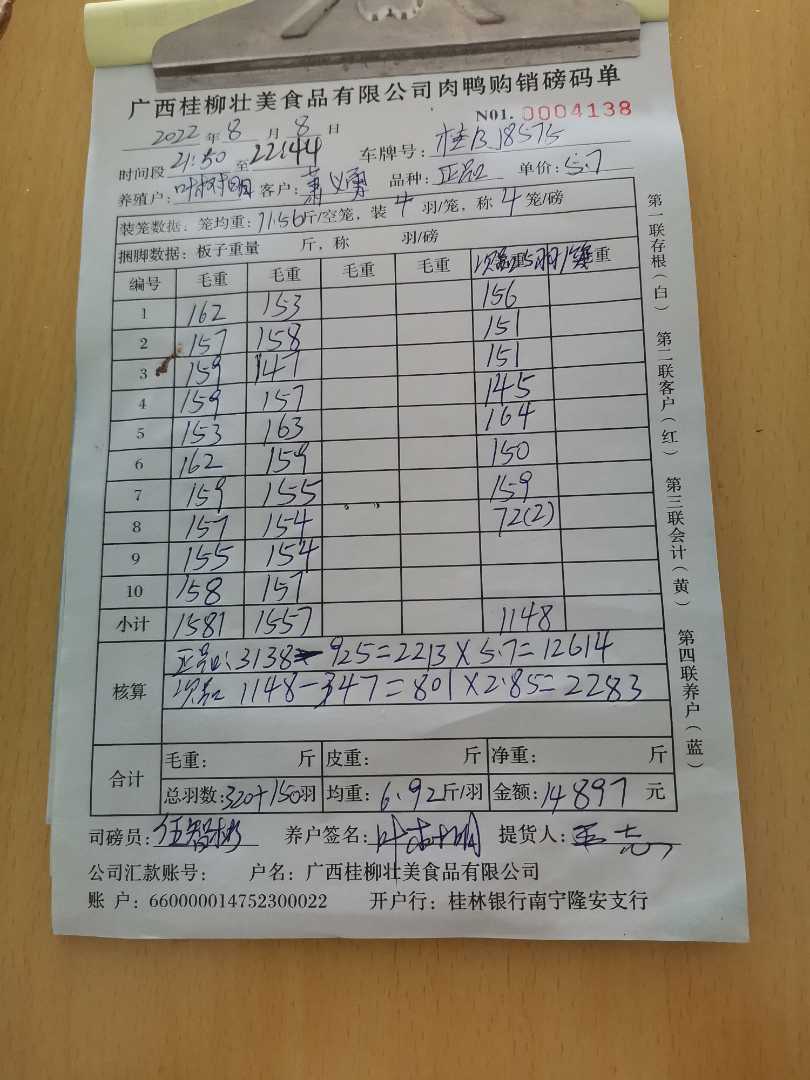 广西桂柳壮美食品有限公司肉鸭购销磅码单
N01. 0004138
2022 年 8 月 8 日
时间段 21:50 至 22:44 车牌号: 桂B18575
养殖户: 叶树明 客户: 萧义勇 品种: 正品 单价: 5.7
装笼数据: 笼均重: 11.56斤/空笼, 装 4 羽/笼, 称 4 笼/磅
捆脚数据: 板子重量 斤, 称 羽/磅
编号 毛重 毛重 毛重 毛重 次品 5羽/笼 重
1 162 153 156
2 157 158 151
3 159 147 151
4 159 157 145
5 153 163 164
6 162 159 150
7 159 155 159
8 157 154 72(2)
9 155 154
10 158 157
小计 1581 1557 1148
核算 正品: 3138-925=2213×5.7=12614
次品 1148-347=801×2.85=2283
合计 毛重: 斤 皮重: 斤 净重: 斤
总羽数: 320+150羽 均重: 6.92斤/羽 金额: 14897 元
司磅员: 伍智彬 养户签名: 叶树明 提货人:
公司汇款账号: 户名: 广西桂柳壮美食品有限公司
账 户: 660000014752300022 开户行: 桂林银行南宁隆安支行
第一联存根(白) 第二联客户(红) 第三联会计(黄) 第四联养户(蓝)